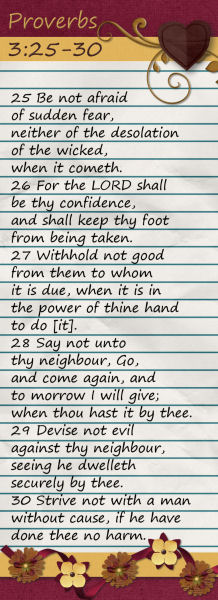 Proverbs
3:25-30
25 Be not afraid
of sudden fear,
neither of the desolation
of the wicked,
when it cometh.
26 For the LORD shall
be thy confidence,
and shall keep thy foot
from being taken.
27 Withhold not good
from them to whom
it is due, when it is in
the power of thine hand
to do [it].
28 Say not unto
thy neighbour, Go,
and come again, and
to morrow I will give;
when thou hast it by thee.
29 Devise not evil
against thy neighbour,
seeing he dwelleth
securely by thee.
30 Strive not with a man
without cause, if he have
done thee no harm.